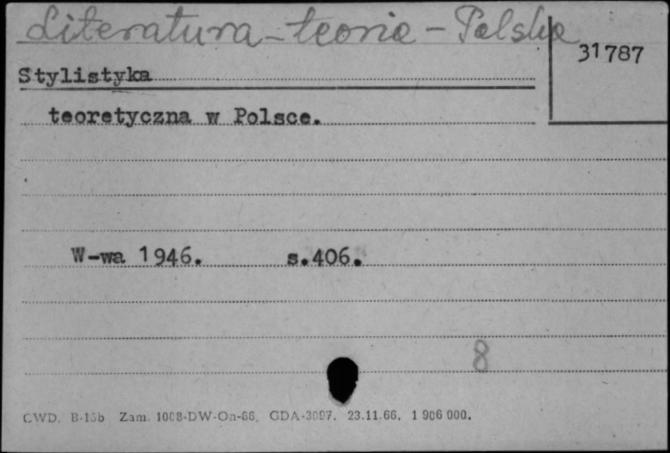 Literatura - teoria - Polska
31787
Stylistyka
teoretyczna w Polsce.
W-wa 1946. s.406.
8
CWD. B-15b Zam. 1008-DW-On-66. GDA-3097. 23.11.66. 1 906 000.